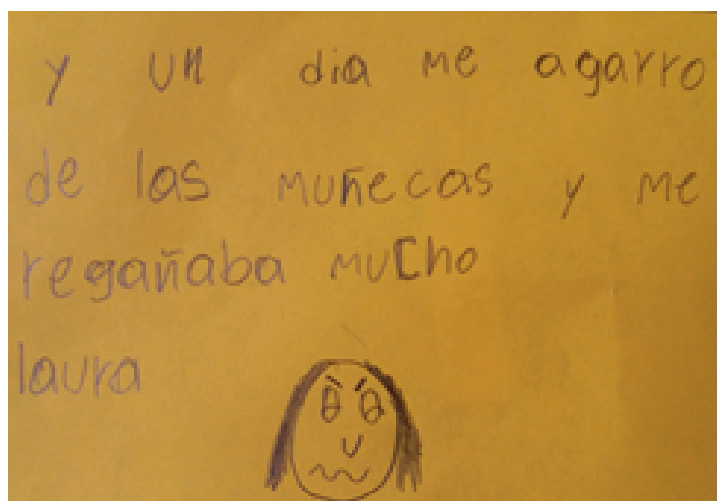 y un dia me agarro
de las muñecas y me
regañaba mucho
laura